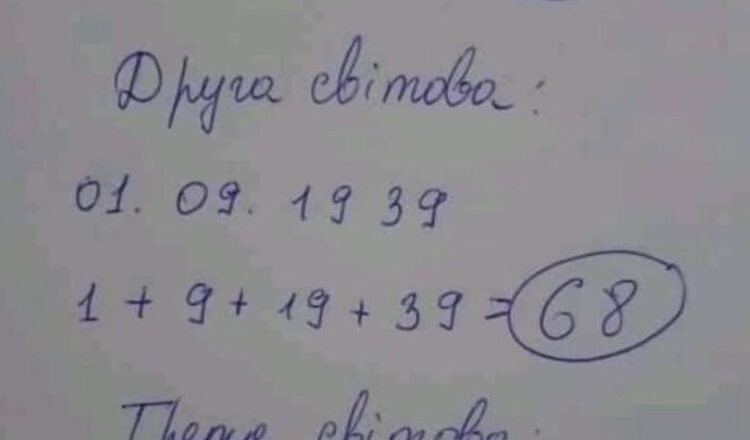 Друга світова:
01. 09. 19 39
1 + 9 + 19 + 39 = 68
світова: